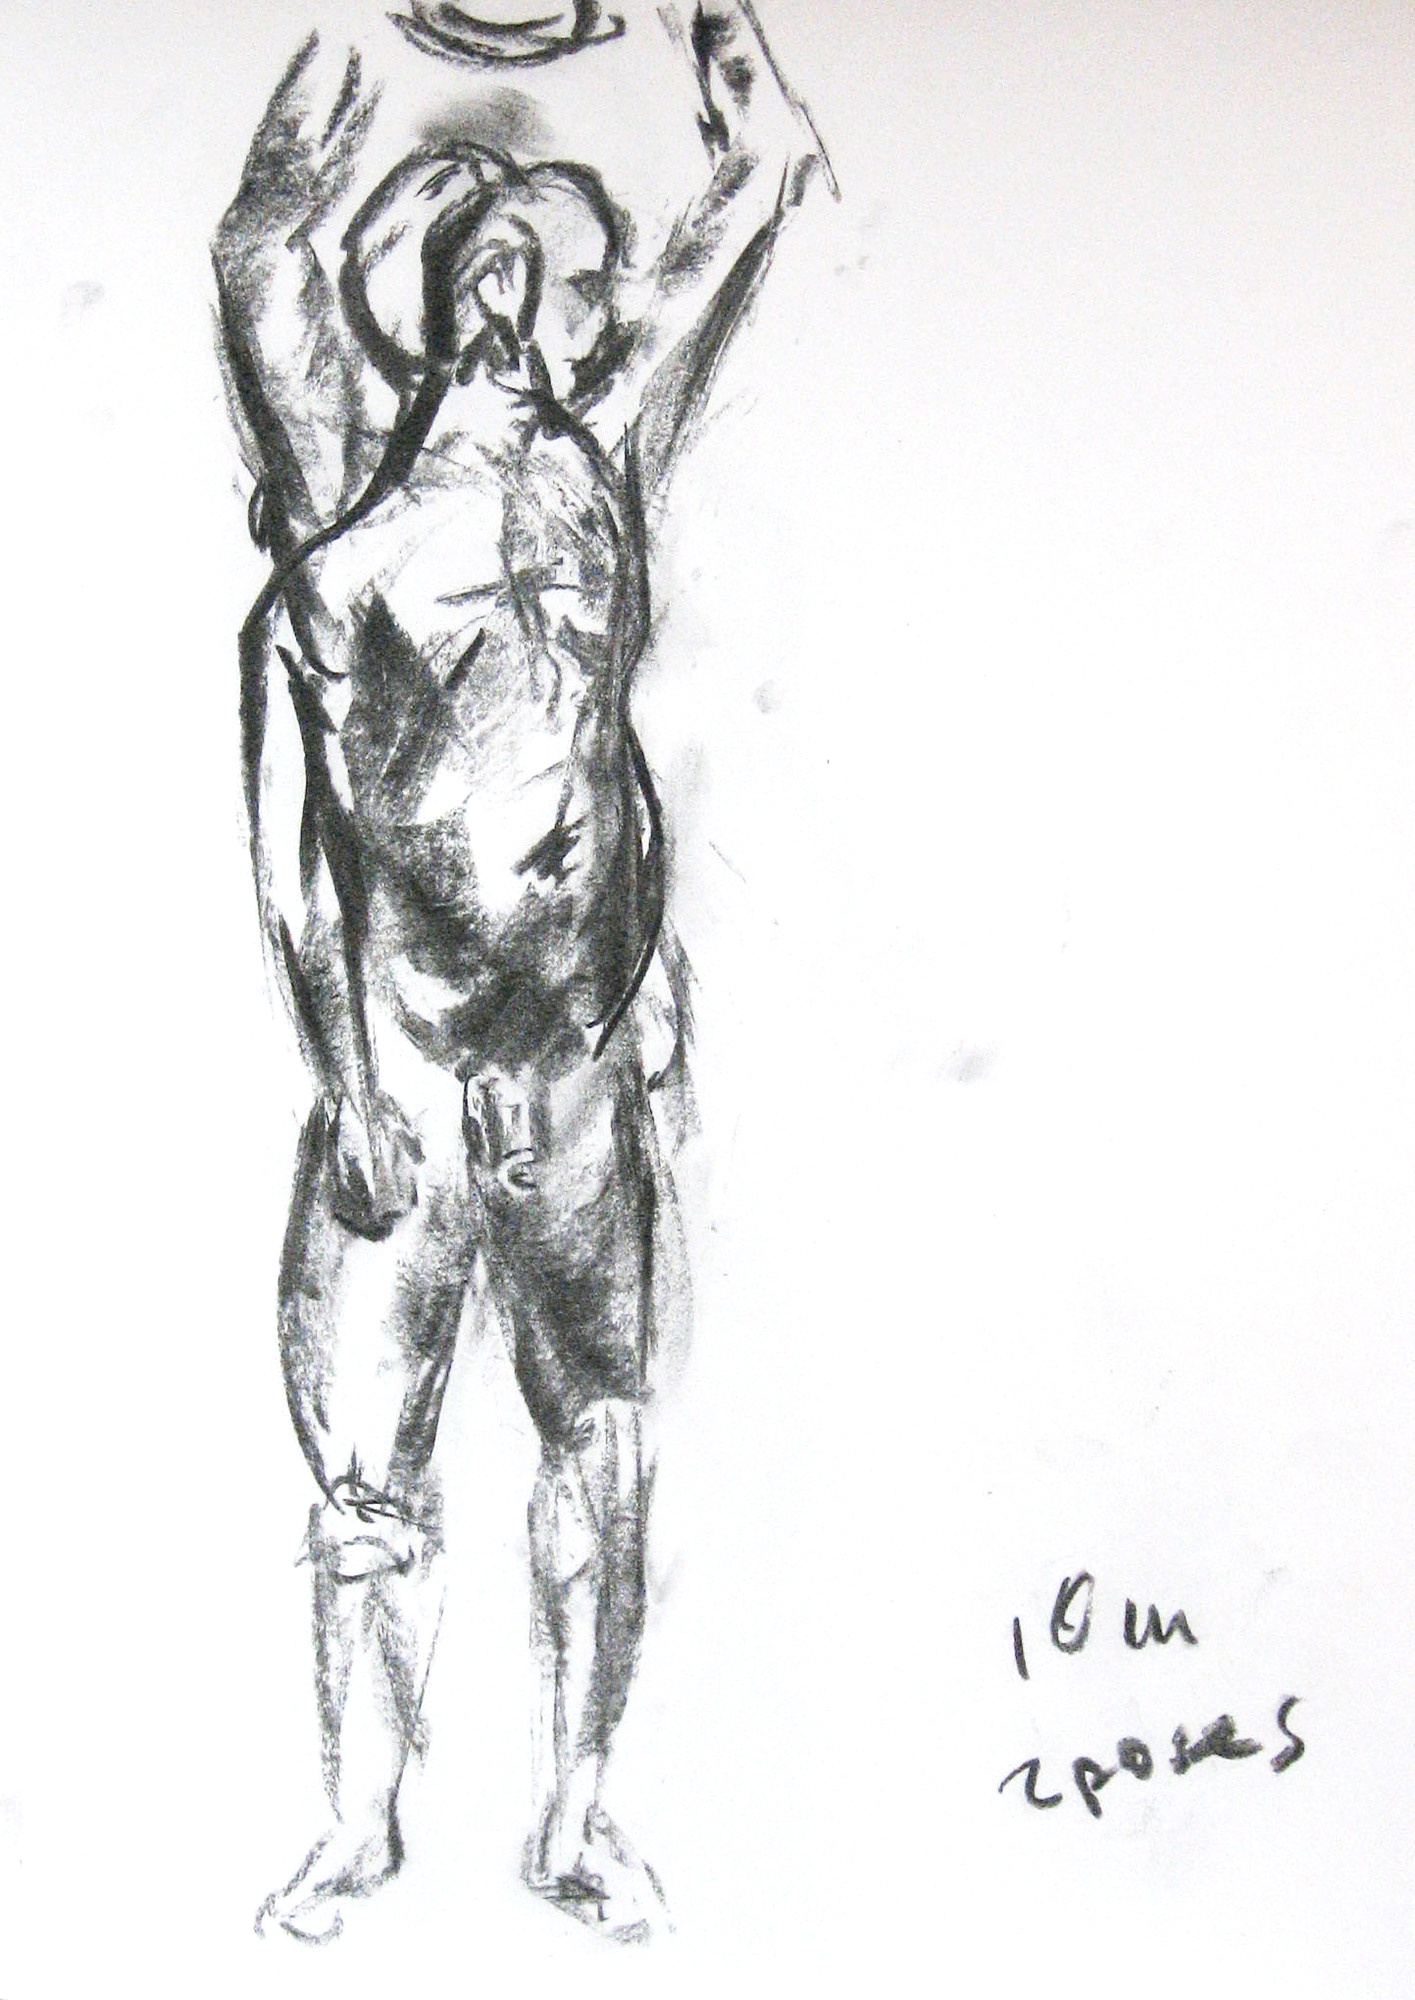 10 m
2 poses